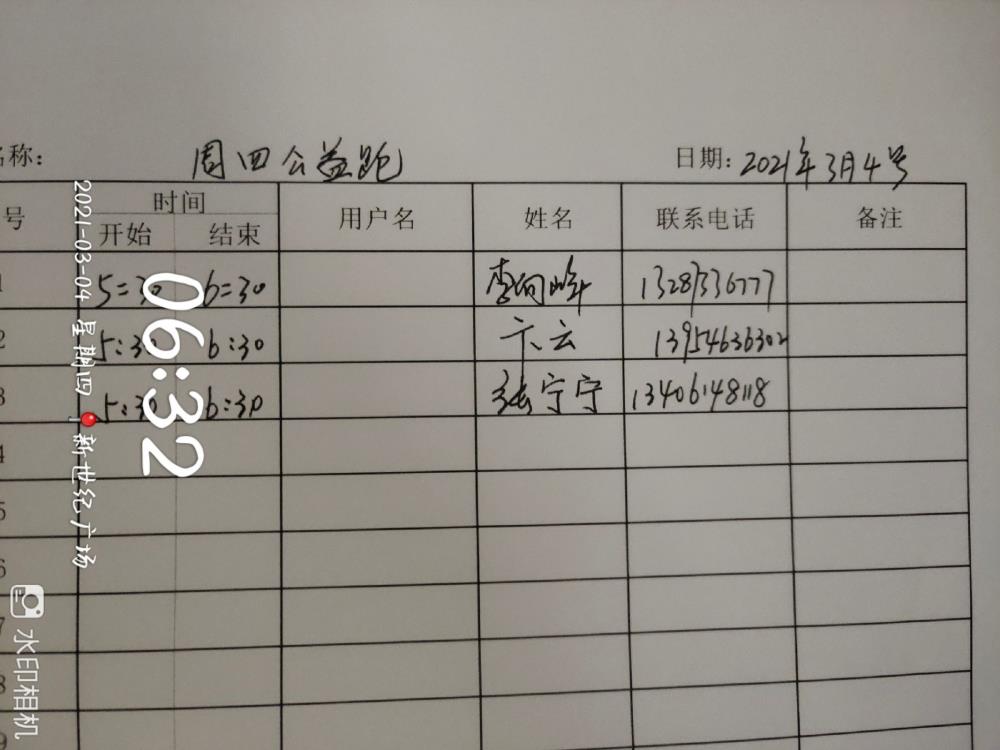 名称： 周四公益跑 日期：2021年3月4号
号 时间 用户名 姓名 联系电话 备注
开始 结束
1 5:30 6:30 李向峰 13287336777
2 5:30 6:30 卞云 13954636302
3 5:30 6:30 张宁宁 13406148118
4
5
6
7
8
9
2021-03-04 星期四 新世纪广场
06:32
水印相机